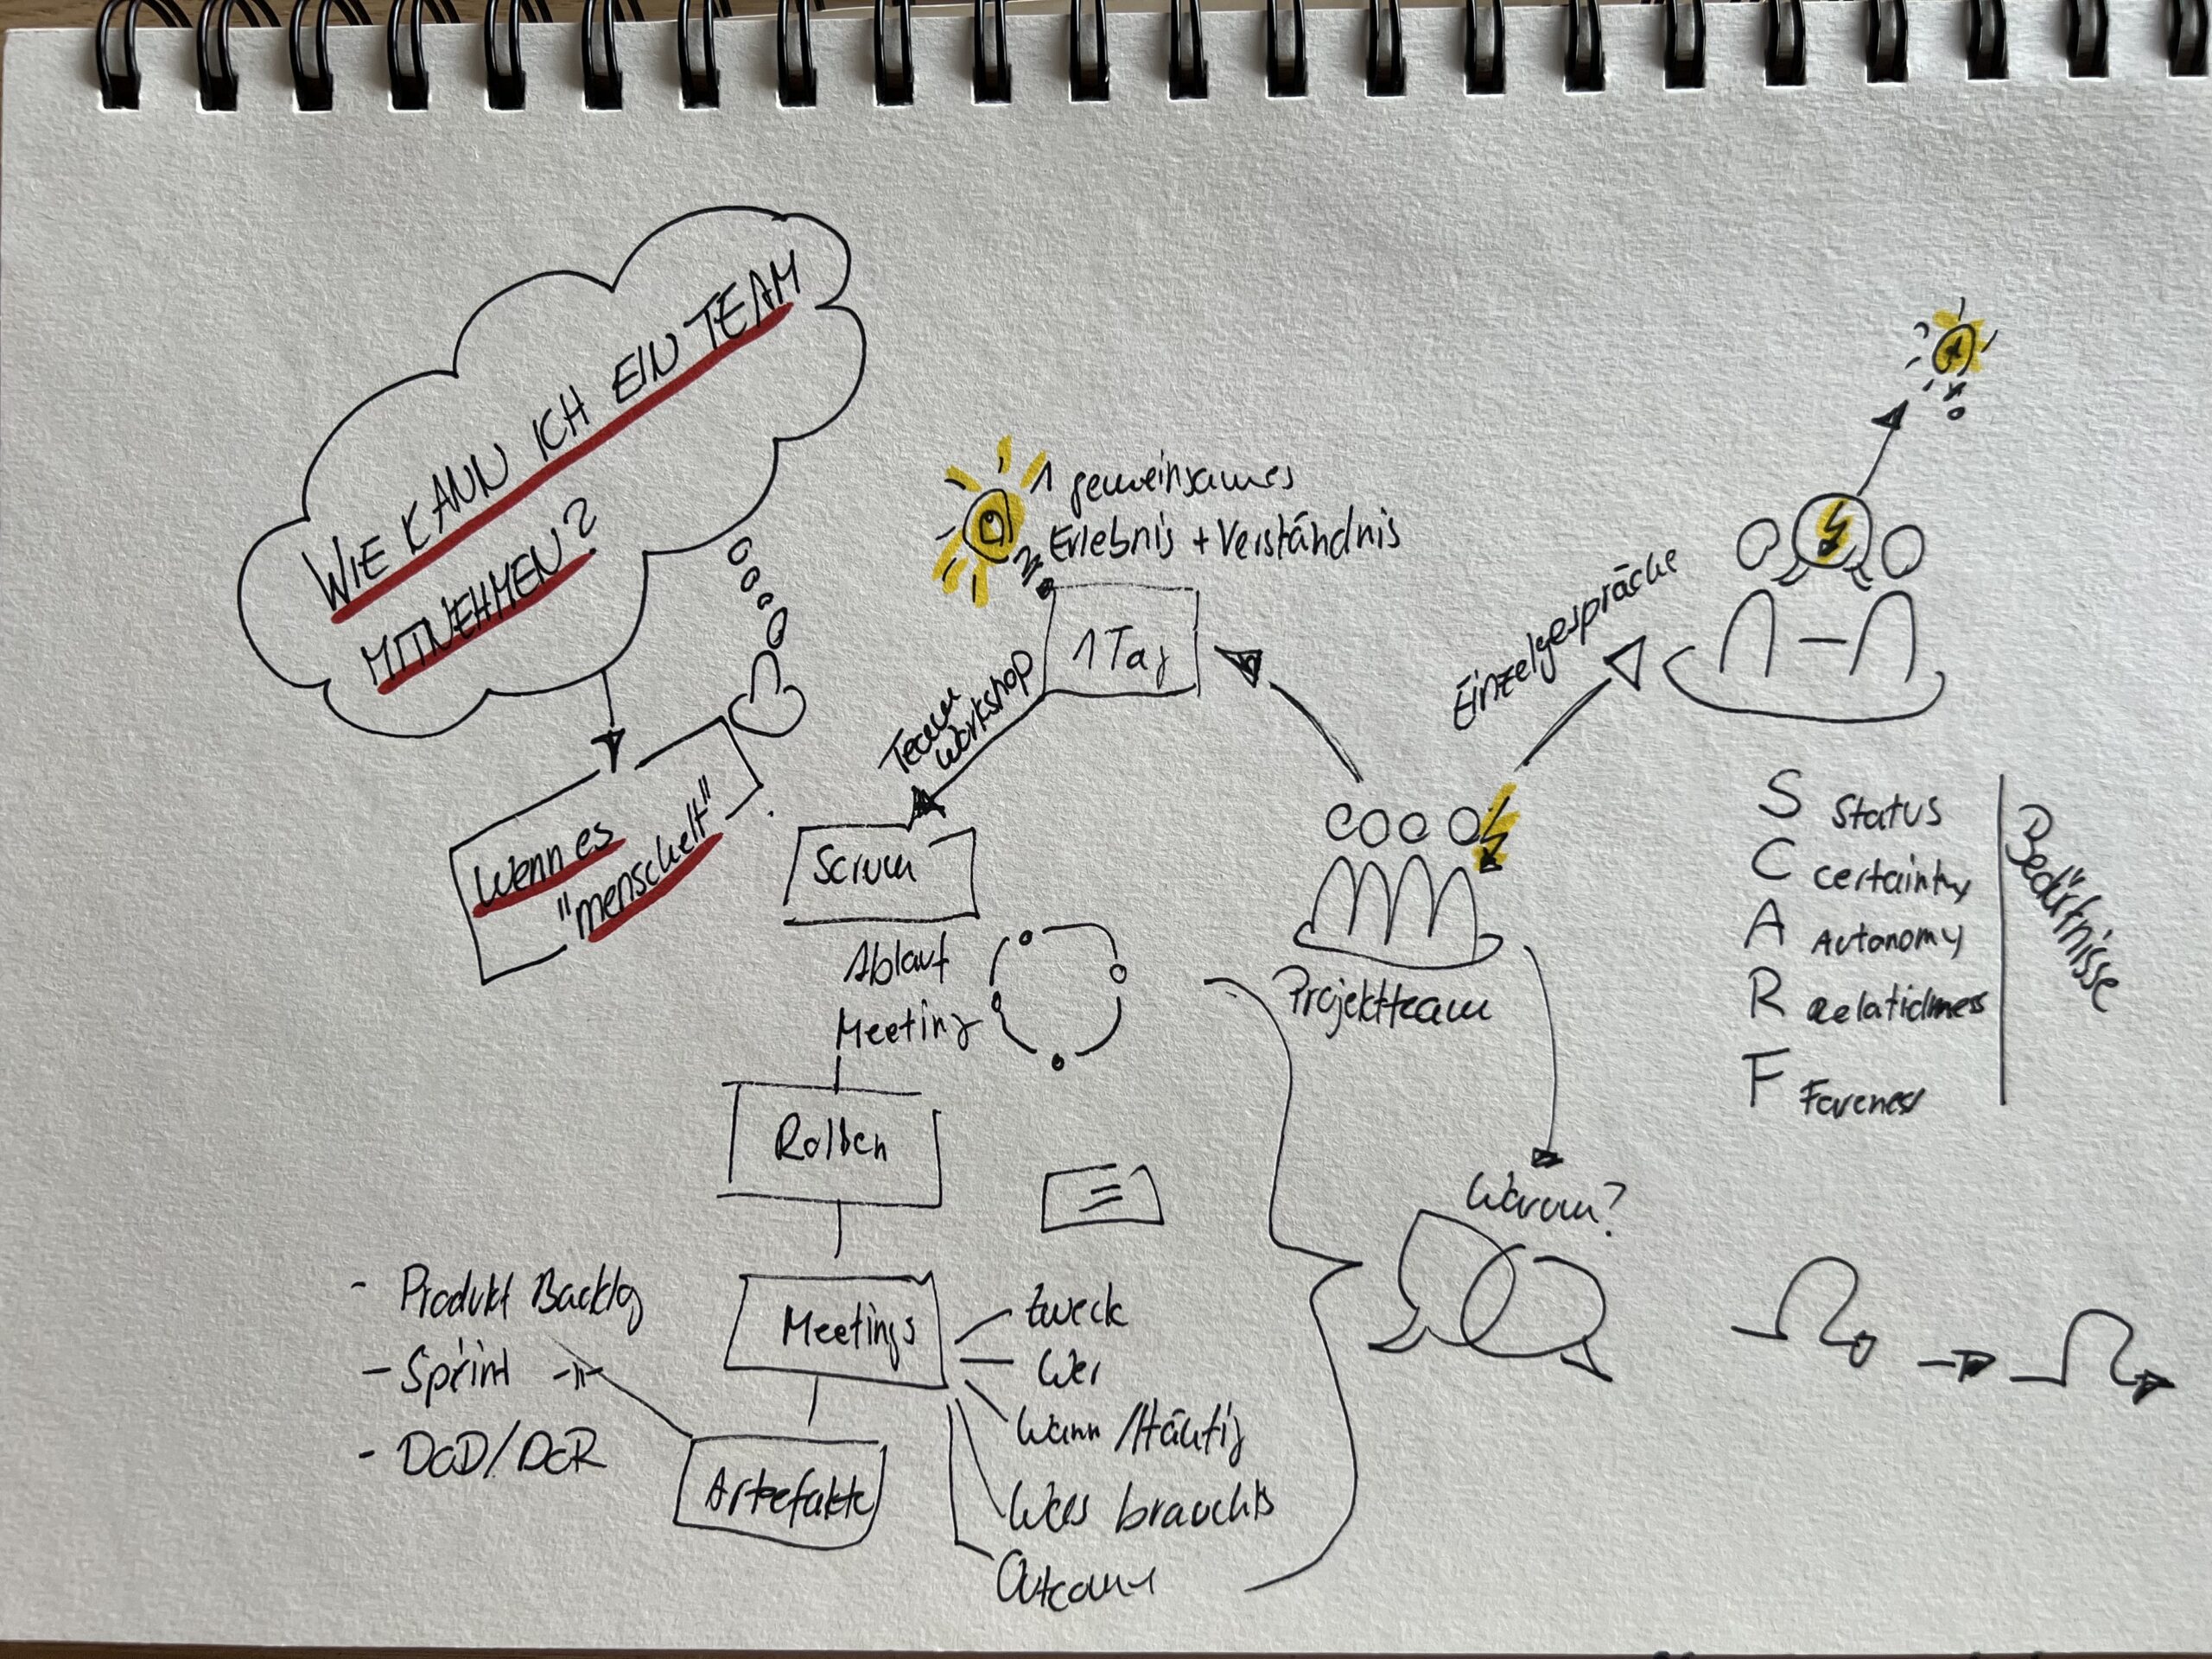 WIE KANN ICH EIN TEAM
MITNEHMEN?
Wenn es
"menschelt"
1 gemeinsames
Erlebnis + Verständnis
1 Tag
Team
Workshop
Scrum
Ablauf
Meeting
Rollen
Meetings
Zweck
Wer
Wann / Häufig
Was brauchts
Outcome
Artefakte
- Produkt Backlog
- Sprint -"-
- DoD/DoR
Projektteam
Einzelgespräche
Warum?
S Status
C certainty
A Autonomy
R Relatidness
F Fareness
Bedürfnisse